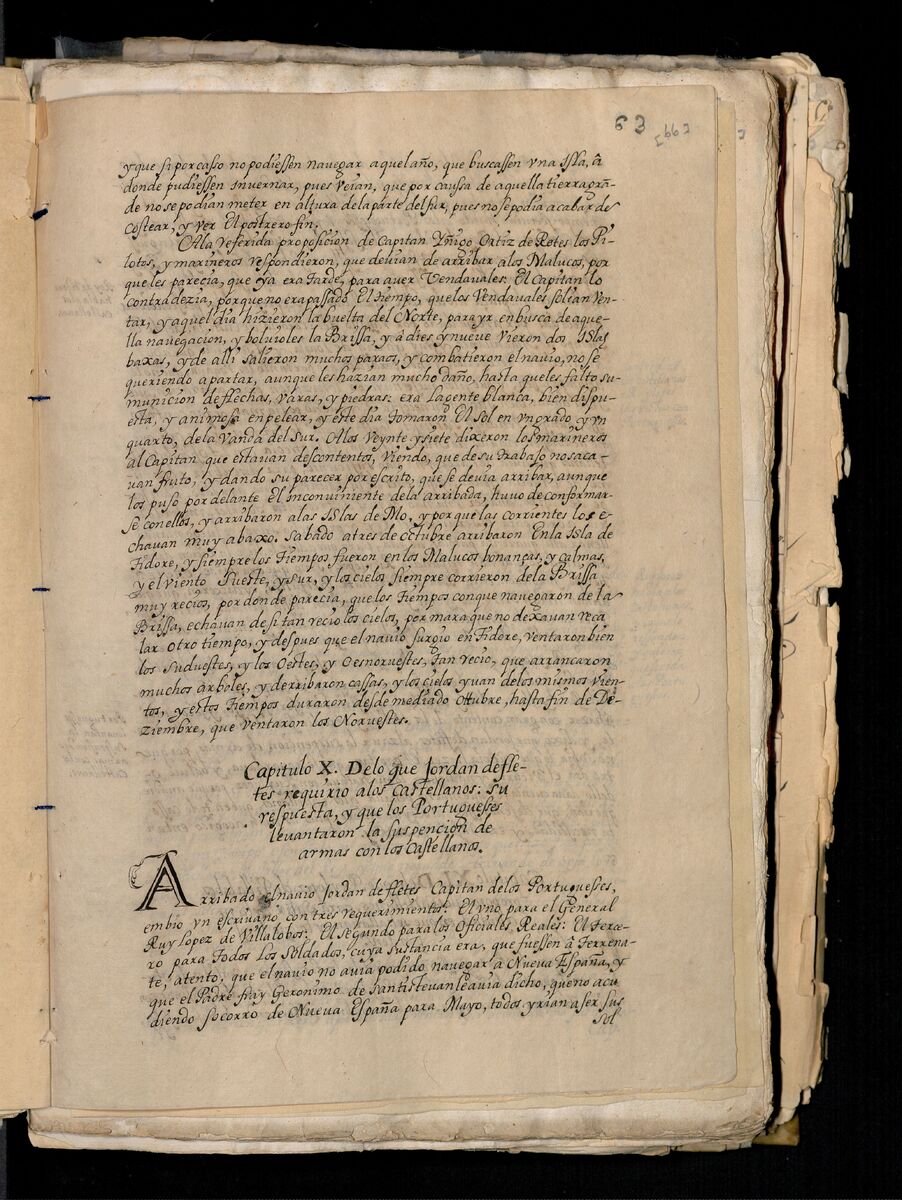 63
y que si por casso no podiessen navegar aquel año, que buscassen vna Isla, â
donde pudiessen Invernar, pues Veian, que por caussa de aquella tierra grã-
de no se podian meter en altura dela parte del sur, pues no se podia acabar de
Costear, y ver El postrero fin.
Ala referida proposicion de Capitan Yñigo Ortiz de Retes los Pi-
lotos, y marineros respondieron, que devian de arribar alos Malucos, por
que les parecia, que ya era tarde, para aver Vendavales: El Capitan lo
contradezia, porque no era passado El tiempo, que los Vendavales solian Ven-
tar, y aquel dia hizieron la buelta del Norte, para yr en busca de aque-
lla navegacion, y bolvioles la Brissa, y â dies y nueve Vieron dos Islas
baxas, y de alli salieron muchos paraos, y combatieron el navio, no se
queriendo apartar, aunque les hazian mucho daño, hasta que les falto su
municion de flechas, varas, y piedras: era la gente blanca, bien dispu-
esta, y animosa en pelear, y este dia tomaron El Sol en vn grado y vn
quarto, de la Vanda del Sur. Alos Veynte y siete dixeron los marineros
al Capitan que estavan descontentos, Viendo, que de su trabajo no saca-
van fruto, y dando su parecer por escrito, que se devia arribar, aunque
los puso por delante El inconviniente dela arribada, huvo de conformar-
se con ellos, y arribaron alas Islas de Mo, y porque las corrientes los e-
chavan muy abaxo. Sabado a tres de octubre arribaron En la Isla de
Tidore, y siempre los Tiempos fueron en los Malucos bonanças, y calmas,
y el viento Sueste, y sur, y los cielos siempre corrieron dela Brissa
muy recios, por donde parecia, que los tiempos con que navegaron de la
Brissa, echavan de si tan recio los cielos, por mara que no dexavan reca
lar otro tiempo, y despues que el navio surgio en Tidore, ventaron bien
los Suduestes, y los Oestes, y Oesnoruestes, tan recio, que arrancaron
muchos arboles, y derribaron cassas, y los cielos yvan delos mismos vien-
tos, y estos tiempos duraron desde mediado Ottubre, hasta fin de De-
ziembre, que ventaron los Noruestes.
Capitulo X. Delo que Jordan de fle-
tes requirio alos Castellanos: su
respuesta, y que los Portuguesses
levantaron la suspencion de
armas con los Castellanos.
Arribado el navio Jordan de fletes Capitan delos Portuguesses,
embio vn escrivano con tres requerimientos: El vno para el General
Ruy Lopez de Villalobos: El segundo para los Oficiales Reales: El terce-
ro para Todos Los Soldados, cuya sustancia era, que fuessen â Terrena-
te, atento, que el navio no avia podido navegar â Nueva España, y
que el Padre fray Geronimo de Santistevan le avia dicho, que no acu
diendo socorro de Nueva España para Mayo, todos yrian a ser sus
sol